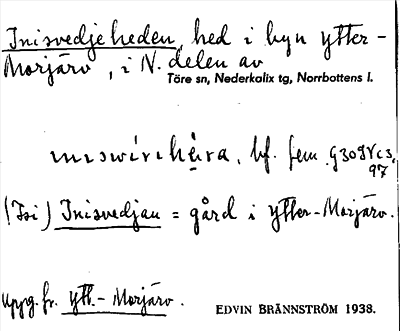 Inisvedjeheden, hed i byn Ytter-
Morjärv, i N. delen av
Töre sn, Nederkalix tg, Norrbottens l.
bf. fem.
97
(Isi) Inisvedjan = gård i Ytter-Morjärv.
uppg. fr. Ytt.-Morjärv.
EDVIN BRÄNNSTRÖM 1938.